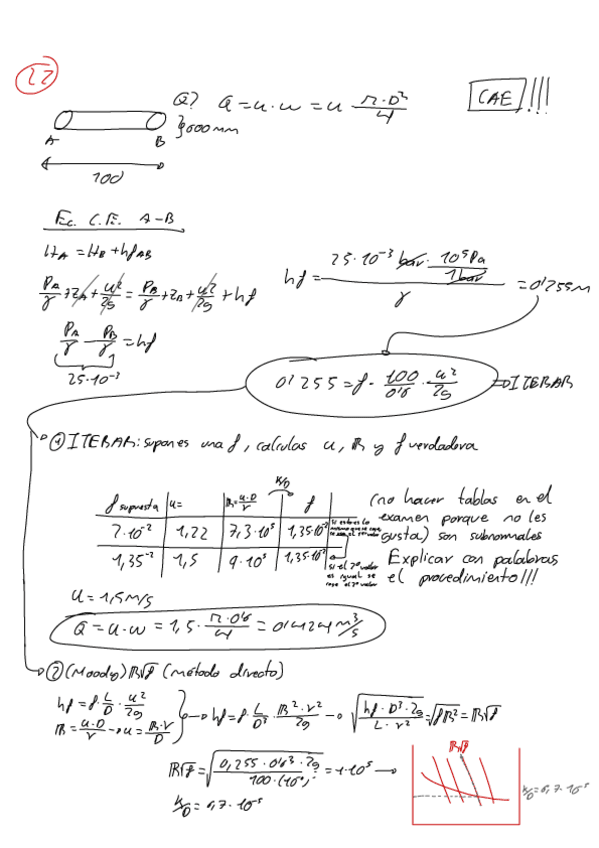 22
Q? Q = u·w = u π·D²/4
CAE!!!
A B }600mm
100
Ec. C.E. A-B
H_A = H_B + hf_AB
P_A/γ + z_A + u²/2g = P_B/γ + z_B + u²/2g + hf
P_A/γ - P_B/γ = hf
25·10⁻³
hf = (25·10⁻³ bar · 10⁵Pa/1bar)/γ = 0'255m
0'255 = f · 100/0'6 · u²/2g ⇒ ITERAR
① ITERAR: supones una f, calculas u, R y f verdadera
f supuesta | u= | R=u·D/ν | K/D | f
2·10⁻² | 1,22 | 7,3·10⁵ | 1,35·10⁻²
1,35⁻² | 1,5 | 9·10⁵ | 1,35·10⁻²
si el 2º valor es igual se
(no hacer tablas en el
examen porque no les
gusta) son subnormales
Explicar con palabras
el procedimiento!!!
u = 1,5m/s
Q = u·w = 1,5 · π·0'6/4 = 0'424 m³/s
② (Moody) R√f (método directo)
hf = f · L/D · u²/2g
R = u·D/ν → u = R·ν/D
→ hf = f · L/D³ · R²·ν²/2g → √(hf·D³·2g/L·ν²) = √(fR²) = R√f
R√f = √(0,255·0'6³·2g/100·(10⁻⁶)²) = 1·10⁵ →
K/D = 6,7·10⁻⁵
R√f
K/D = 6,7·10⁻⁵